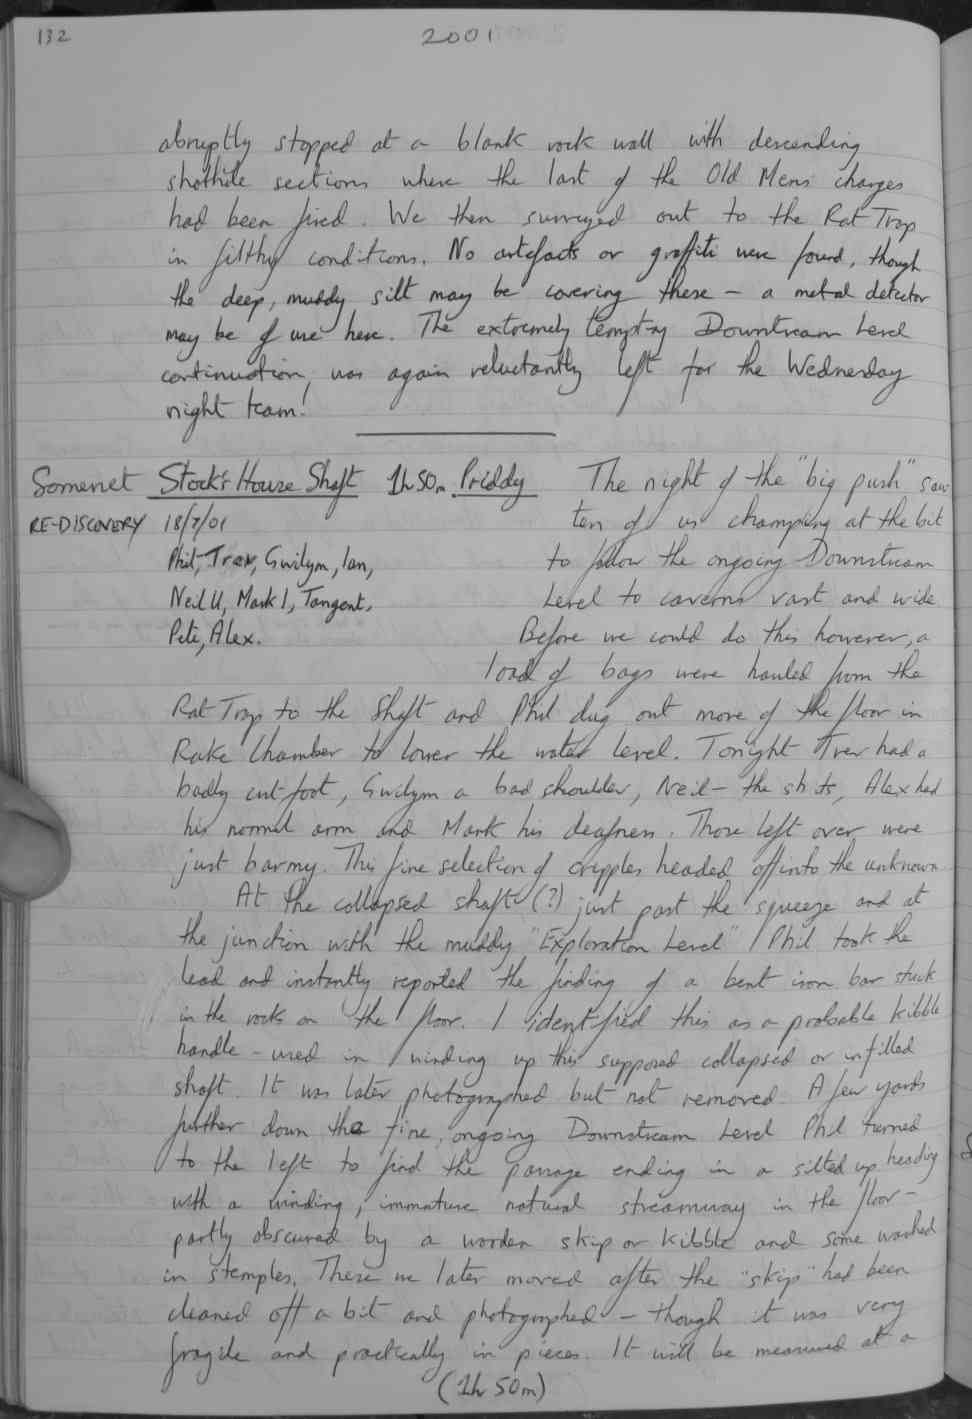 132
2001
abruptly stopped at a blank rock wall with descending
shothole sections where the last of the Old Mens charges
had been fired. We then surveyed out to the Rat Trap
in filthy conditions. No artefacts or graffiti were found, though
the deep, muddy silt may be covering these - a metal detector
may be of use here. The extremely tempting Downstream Level
continuation, was again reluctantly left for the Wednesday
night team!
Somerset Stock's House Shaft 1h 50m Priddy The night of the "big push" saw
RE-DISCOVERY 18/7/01 ten of us champing at the bit
Phil, Trev, Gwilym, Ian, to follow the ongoing Downstream
Neil U, Mark I, Tangent, Level to caverns vast and wide.
Pete, Alex. Before we could do this however, a
load of bags were hauled from the
Rat Trap to the Shaft and Phil dug out more of the floor in
Rake Chamber to lower the water level. Tonight Trev had a
badly cut foot, Gwilym a bad shoulder, Neil - the shits, Alex had
his normal arm and Mark his deafness. Those left over were
just barmy. This fine selection of cripples headed off into the unknown
At the collapsed shaft (?) just past the squeeze and at
the junction with the muddy "Exploration Level" Phil took the
lead and instantly reported the finding of a bent iron bar stuck
in the rocks on the floor. I identified this as a probable kibble
handle - used in winding up this supposed collapsed or infilled
shaft. It was later photographed but not removed. A few yards
further down the fine, ongoing Downstream Level Phil turned
to the left to find the passage ending in a silted up heading
with a winding, immature natural streamway in the floor -
partly obscured by a wooden skip or kibble and some washed
in stemples. These we later moved after the "skip" had been
cleaned off a bit and photographed - though it was very
fragile and practically in pieces. It will be measured at a
(1h 50m)